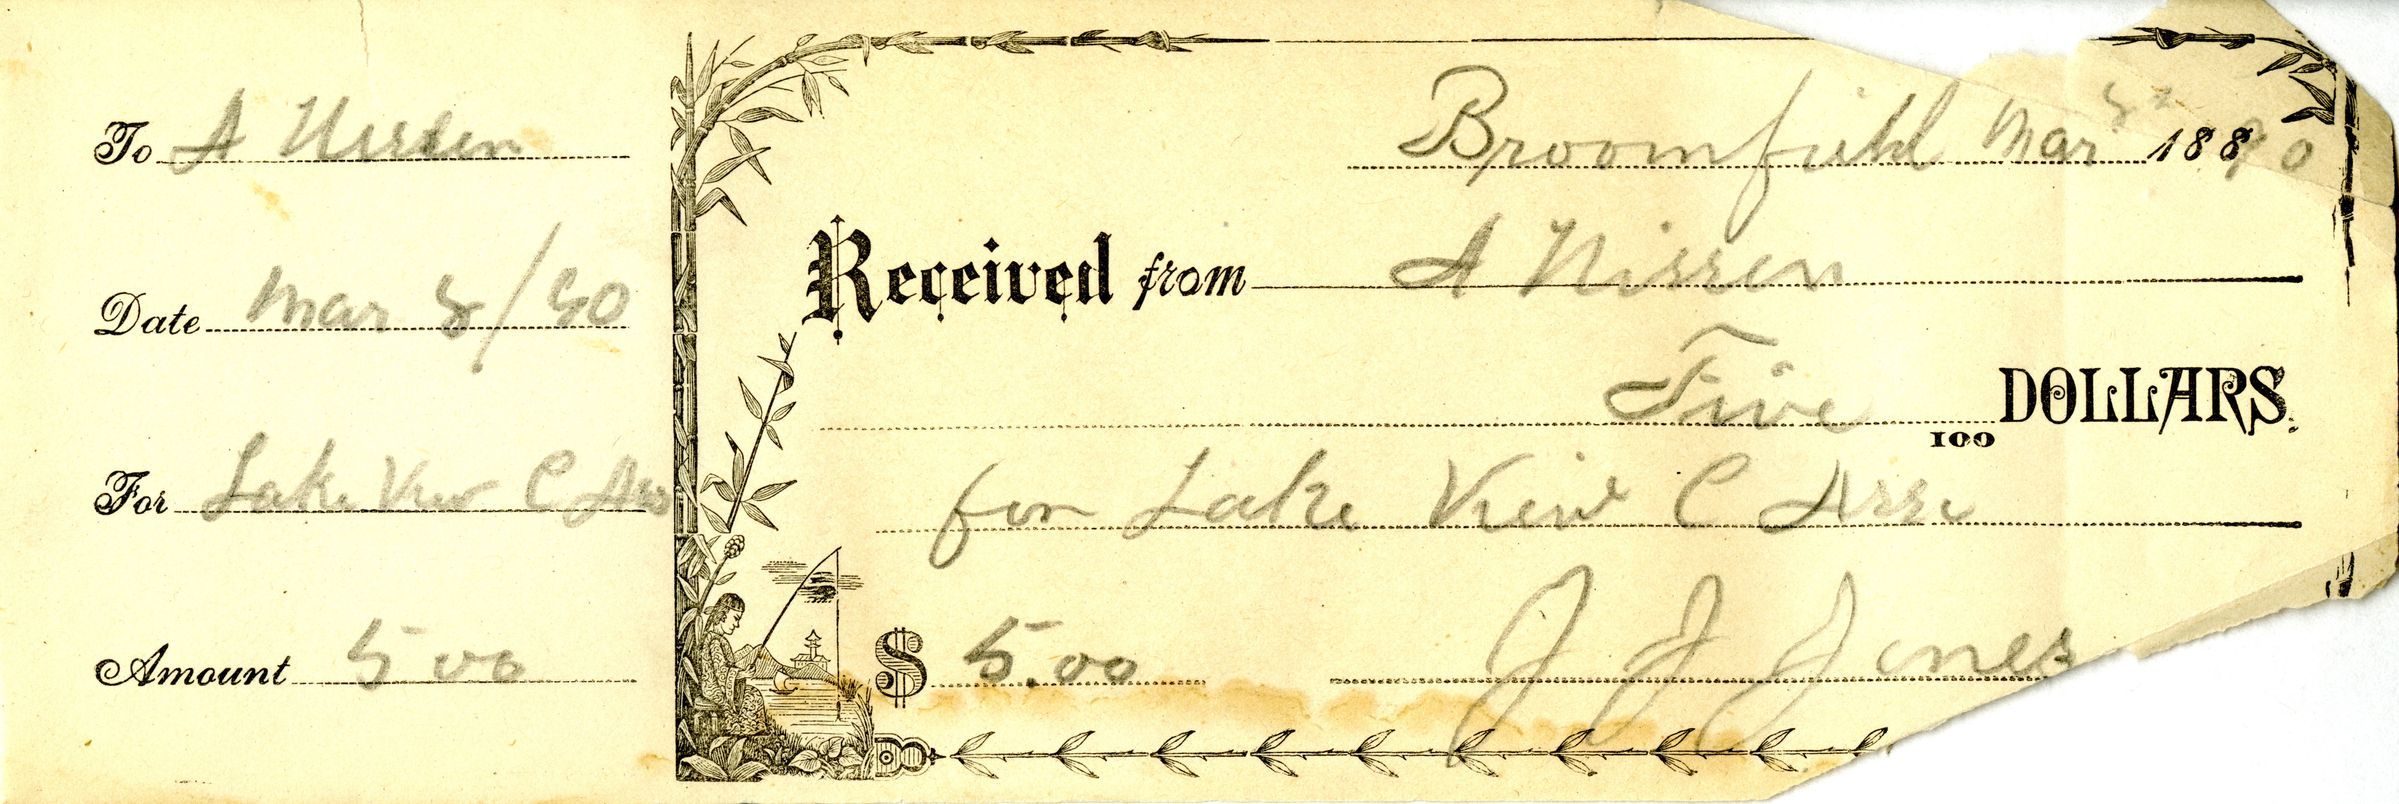 To A Nissen
Date Mar 8/90
For Lake View C Asso
Amount 5 00
Broomfield Mar 8 188 90
Received from A Nissen
Five 100 DOLLARS.
for Lake View C Asso
$ 5.00 J J Jones